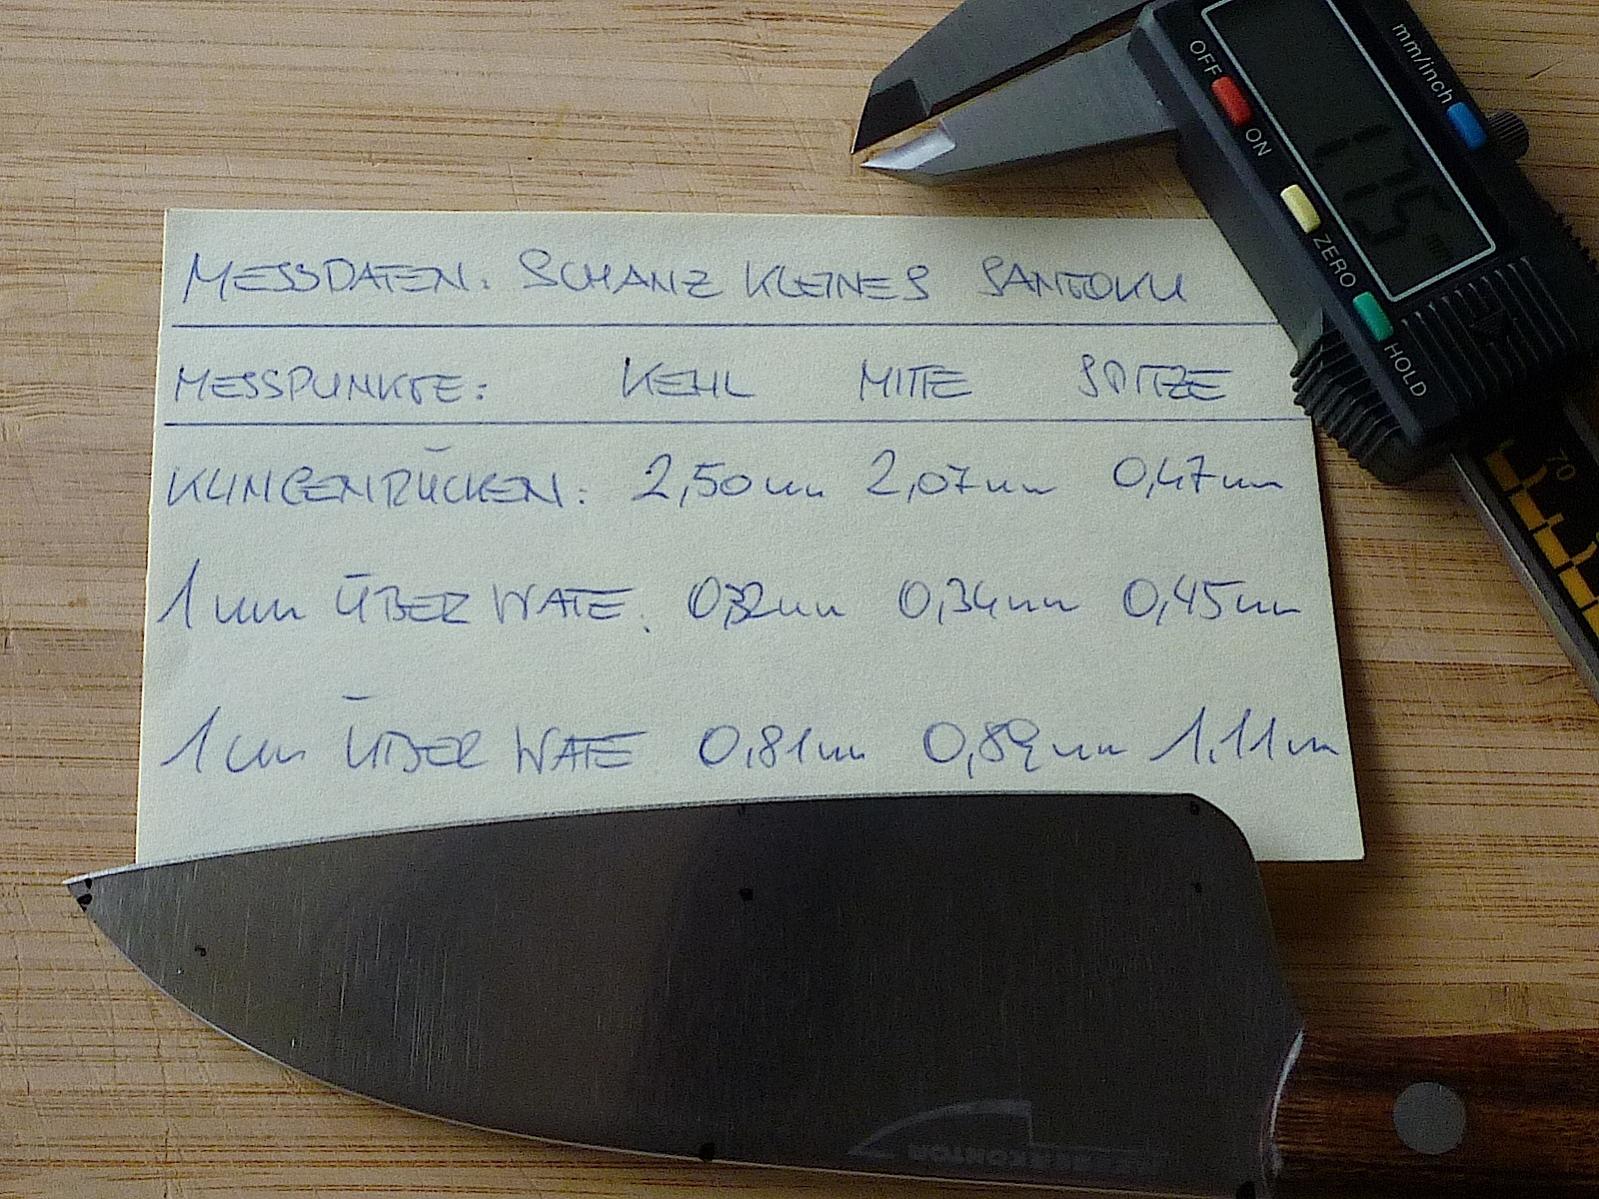 mm/inch
OFF
ON
ZERO
HOLD
70
MESSDATEN: SCHANZ KLEINES SANTOKU
MESSPUNKTE: KEHL MITTE SPITZE
KLINGENRÜCKEN: 2,50mm 2,07mm 0,47mm
1mm ÜBER WATE: 0,32mm 0,34mm 0,45mm
1cm ÜBER WATE 0,81mm 0,89mm 1,11mm